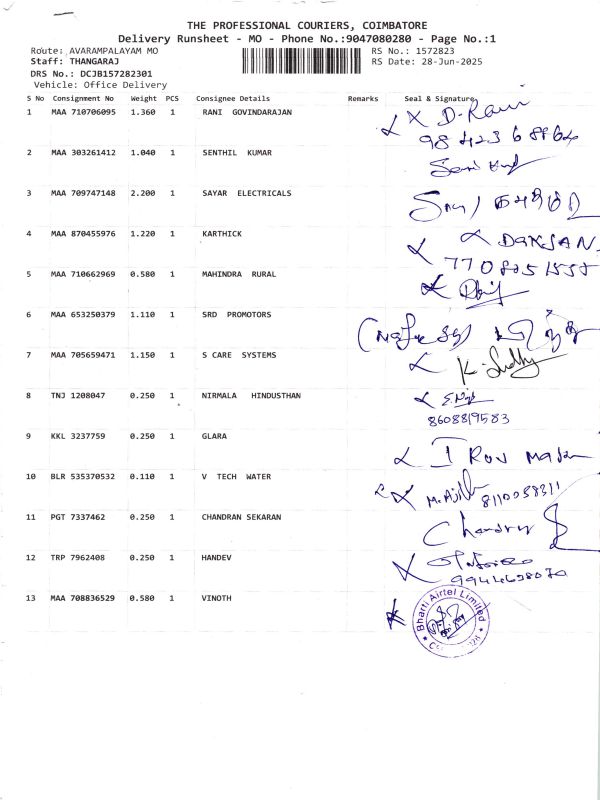 THE PROFESSIONAL COURIERS, COIMBATORE
Delivery Runsheet - MO - Phone No.:9047080280 - Page No.:1
Route: AVARAMPALAYAM MO RS No.: 1572823
Staff: THANGARAJ RS Date: 28-Jun-2025
DRS No.: DCJB157282301
Vehicle: Office Delivery
S No Consignment No Weight PCS Consignee Details Remarks Seal & Signature
1 MAA 710706095 1.360 1 RANI GOVINDARAJAN D-Rani
2 MAA 303261412 1.040 1 SENTHIL KUMAR
3 MAA 709747148 2.200 1 SAYAR ELECTRICALS
4 MAA 870455976 1.220 1 KARTHICK DAKSAN
5 MAA 710662969 0.580 1 MAHINDRA RURAL
6 MAA 653250379 1.110 1 SRD PROMOTORS
7 MAA 705659471 1.150 1 S CARE SYSTEMS
8 TNJ 1208047 0.250 1 NIRMALA HINDUSTHAN
8608819583
9 KKL 3237759 0.250 1 GLARA
10 BLR 535370532 0.110 1 V TECH WATER
11 PGT 7337462 0.250 1 CHANDRAN SEKARAN
12 TRP 7962408 0.250 1 HANDEV
13 MAA 708836529 0.580 1 VINOTH
Bharti Airtel Limited